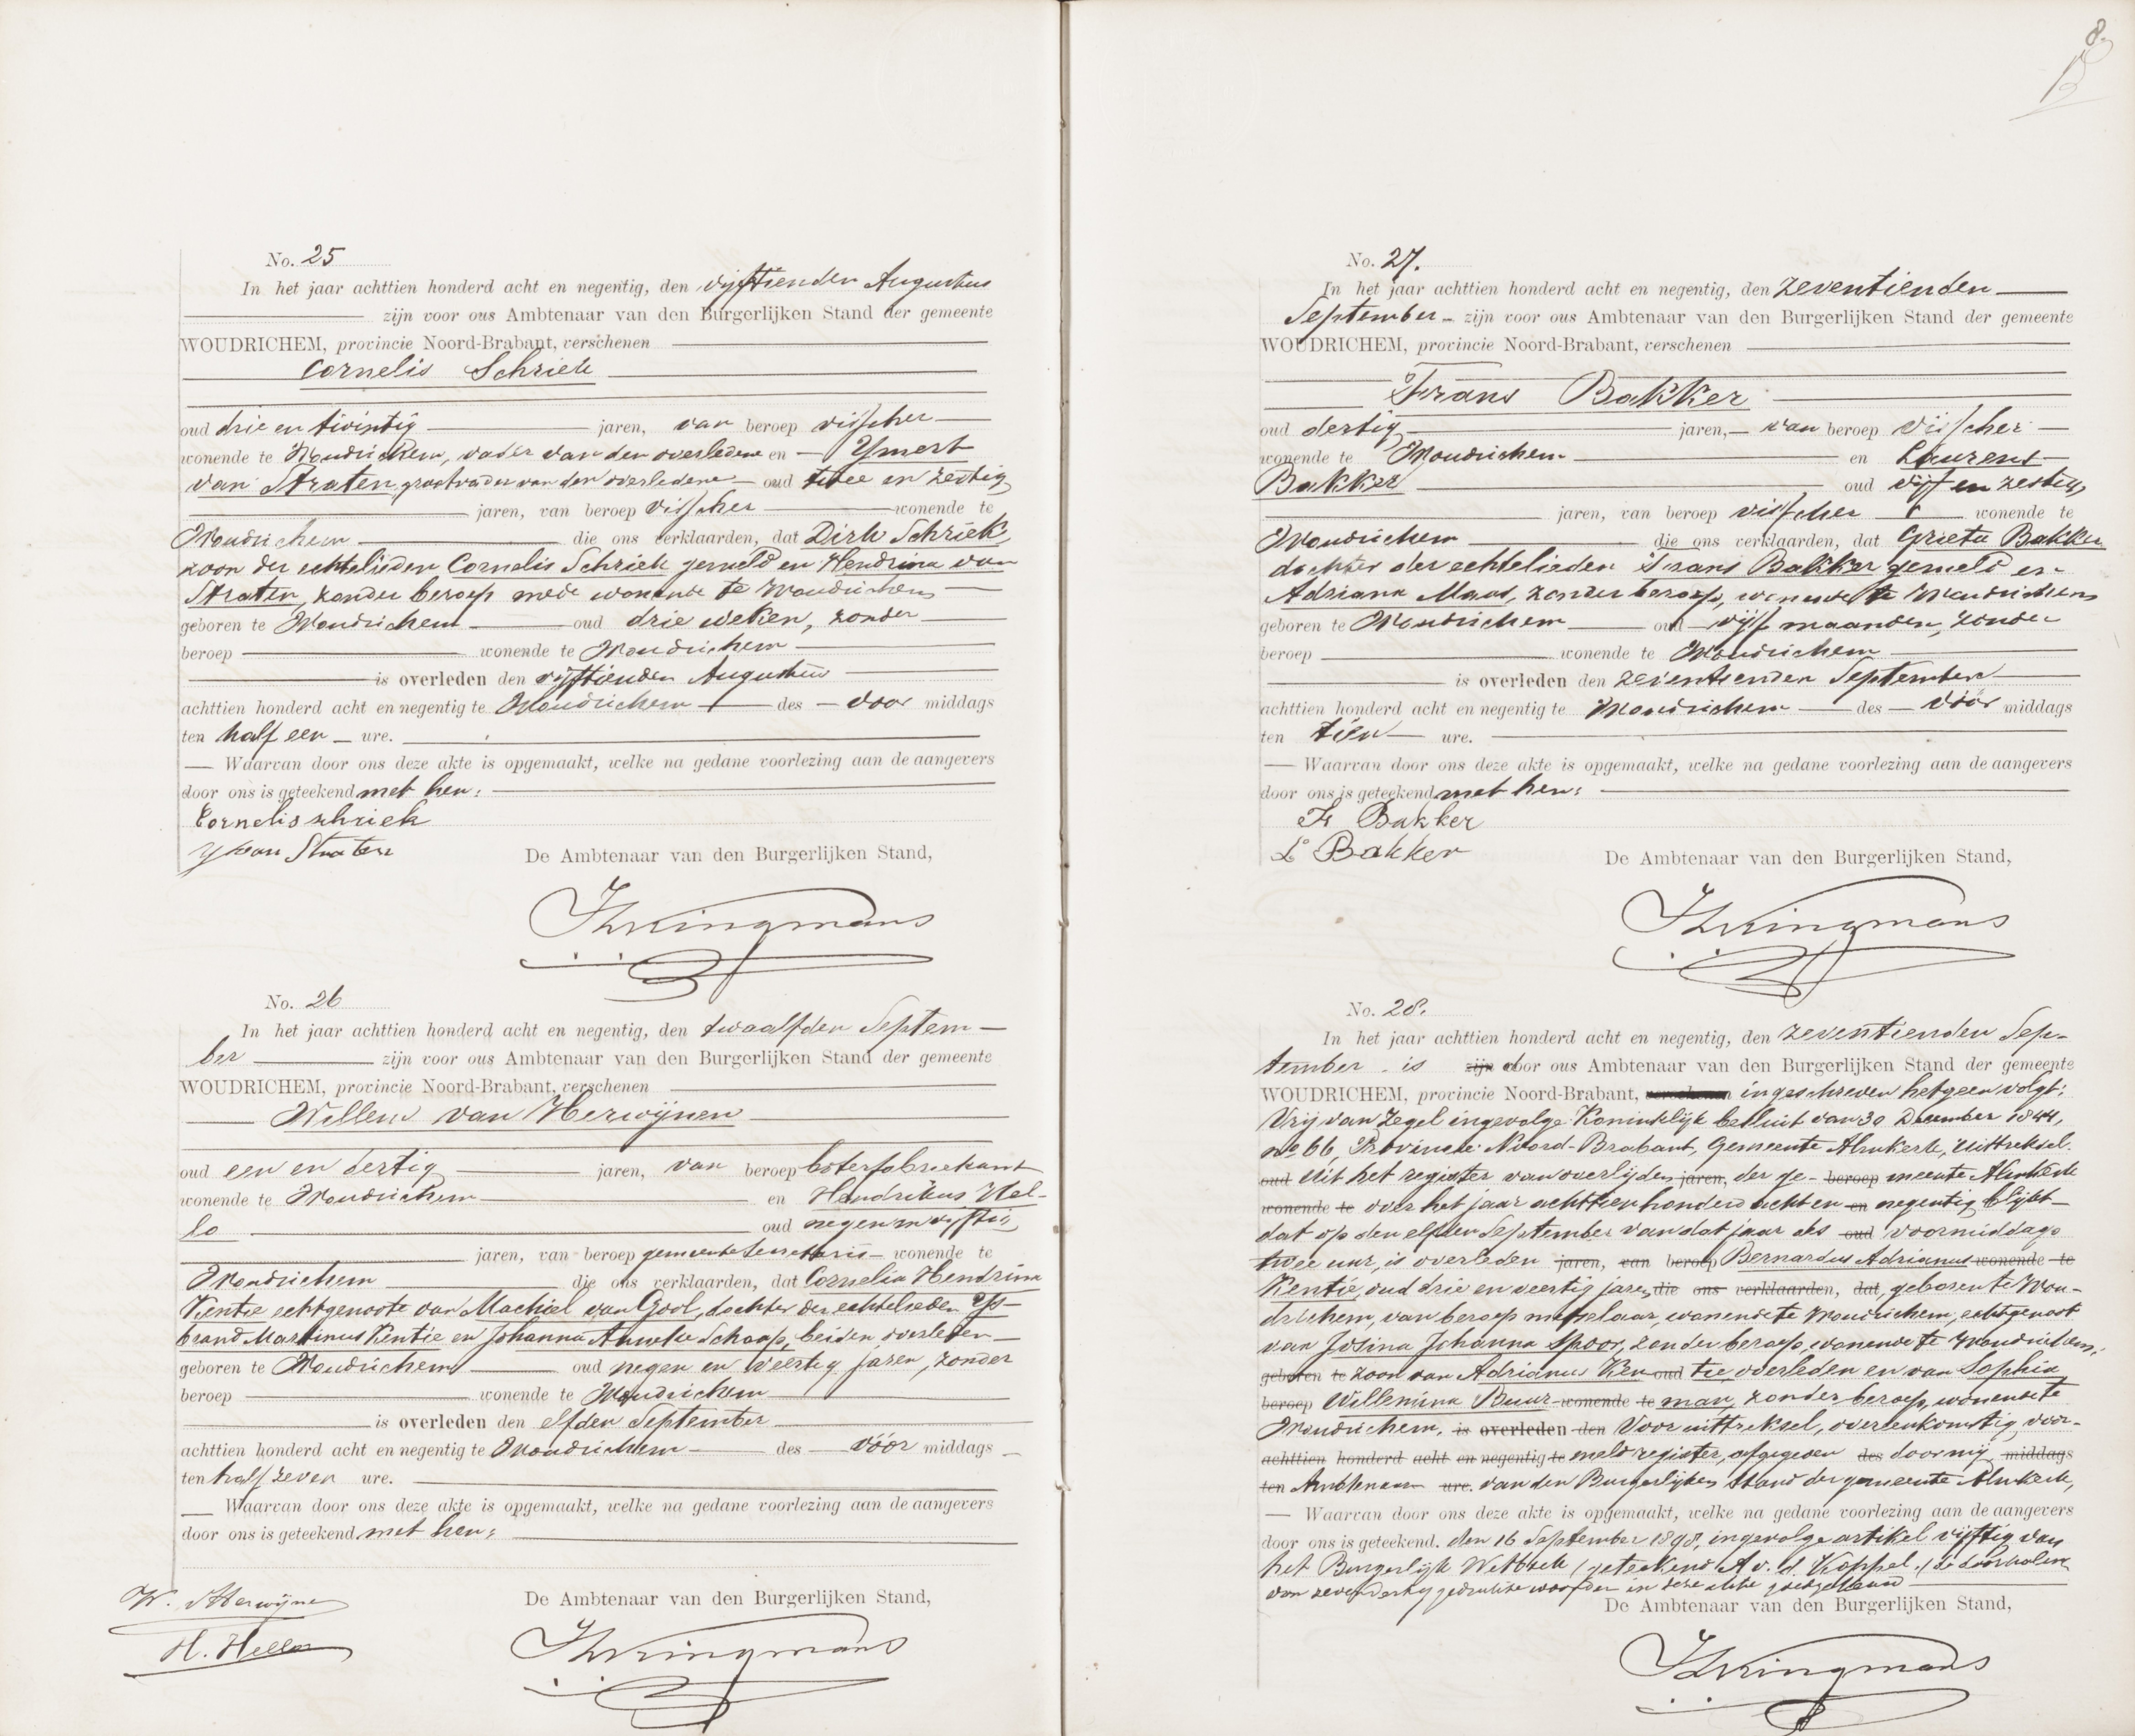 No. 25
In het jaar achttien honderd acht en negentig, den vijftienden Augustus
zijn voor ons Ambtenaar van den Burgerlijken Stand der gemeente
WOUDRICHEM, provincie Noord-Brabant, verschenen
Cornelis Schriek
oud drie en twintig jaren, van beroep visscher
wonende te Woudrichem, vader van den overledene en IJmert
van Straten, grootvader van den overledene oud twee en zestig
jaren, van beroep visscher wonende te
Woudrichem die ons verklaarden, dat Dirk Schriek,
zoon der echtelieden Cornelis Schriek gemeld en Hendrina van
Straten, zonder beroep mede wonende te Woudrichem
geboren te Woudrichem oud drie weken, zonder
beroep wonende te Woudrichem
is overleden den vijftienden Augustus
achttien honderd acht en negentig te Woudrichem des voor middags
ten half een ure.
Waarvan door ons deze akte is opgemaakt, welke na gedane voorlezing aan de aangevers
door ons is geteekend met hen:
Cornelis schriek
Y van Straten
De Ambtenaar van den Burgerlijken Stand,
No. 26
In het jaar achttien honderd acht en negentig, den twaalfden Septem-
ber zijn voor ons Ambtenaar van den Burgerlijken Stand der gemeente
WOUDRICHEM, provincie Noord-Brabant, verschenen
Willem van Herwijnen
oud een en dertig jaren, van beroep boterfabriekant
wonende te Woudrichem en Hendrikus Hel-
lo oud negen en vijftig
jaren, van beroep gemeentesecretaris wonende te
Woudrichem die ons verklaarden, dat Cornelia Hendrina
Kentie echtgenoote van Machiel van Gool, dochter der echtelieden IJs-
brand Martinus Kentie en Johanna Schaap, beiden overleden
geboren te Woudrichem oud negen en veertig jaren, zonder
beroep wonende te Woudrichem
is overleden den elfden September
achttien honderd acht en negentig te Woudrichem des vóór middags
ten half zeven ure.
Waarvan door ons deze akte is opgemaakt, welke na gedane voorlezing aan de aangevers
door ons is geteekend met hen:
W. v Herwijne
H. Hello
De Ambtenaar van den Burgerlijken Stand,
8.
No. 27.
In het jaar achttien honderd acht en negentig, den zeventienden
September zijn voor ons Ambtenaar van den Burgerlijken Stand der gemeente
WOUDRICHEM, provincie Noord-Brabant, verschenen
Frans Bakker
oud dertig jaren, van beroep visscher
wonende te Woudrichem en Laurens
Bakker oud vijf en zestig
jaren, van beroep visscher wonende te
Woudrichem die ons verklaarden, dat Grieta Bakker
dochter der echtelieden Frans Bakker gemeld en
Adriana Maas, zonder beroep, wonende te Woudrichem
geboren te Woudrichem oud vijf maanden, zonder
beroep wonende te Woudrichem
is overleden den zeventienden September
achttien honderd acht en negentig te Woudrichem des vóór middags
ten tien ure.
Waarvan door ons deze akte is opgemaakt, welke na gedane voorlezing aan de aangevers
door ons is geteekend met hen:
Fs Bakker
Ls Bakker
De Ambtenaar van den Burgerlijken Stand,
No. 28.
In het jaar achttien honderd acht en negentig, den zeventienden Sep-
tember is zijn door ons Ambtenaar van den Burgerlijken Stand der gemeente
WOUDRICHEM, provincie Noord-Brabant, verschenen ingeschreven hetgeen volgt:
Vrij van Zegel ingevolge Koninklijk besluit van 30 December 1844,
no 66, Provincie Noord-Brabant, Gemeente Almkerk, Uittreksel.
oud Uit het register van overlijden jaren, der ge- beroep meente Almkerk
wonende te over het jaar achttienhonderd acht en en negentig blijkt
dat op den elfden September van dat jaar des oud voormiddags
twee uur, is overleden jaren, van beroep Bernardus Adrianus wonende te
Kentie, oud drie en veertig jaren, die ons verklaarden, dat, geboren te Wou-
drichem, van beroep metselaar, wonende te Woudrichem, echtgenoot
van Josina Johanna Spoor, zonder beroep, wonende te Woudrichem,
geboren te zoon van Adrianus Ken oud tie, overleden en van Sophia
beroep Willemina Buur wonende te man, zonder beroep, wonende te
Woudrichem. is overleden den Voor uittreksel, overeenkomstig voor-
achttien honderd acht en negentig te meld register, afgegeven des door mij middags
ten Ambtenaar ure. van den Burgerlijken Stand der gemeente Almkerk,
Waarvan door ons deze akte is opgemaakt, welke na gedane voorlezing aan de aangevers
door ons is geteekend. den 16 September 1898, ingevolge artikel vijftig van
het Burgerlijk Wetboek (geteekend A v. d. Koppel.) De doorhalen
van zevendertig gedrukte woorden in deze akte goedgekeurd
De Ambtenaar van den Burgerlijken Stand,